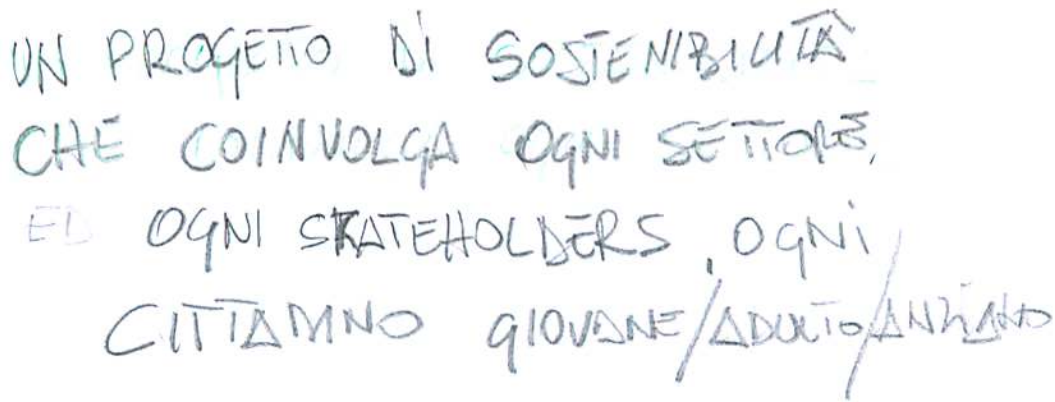 UN PROGETTO DI SOSTENIBILITÀ
CHE COINVOLGA OGNI SETTORE,
ED OGNI SKATEHOLDERS, OGNI
CITTADINO GIOVANE/ADULTO/ANZIANO